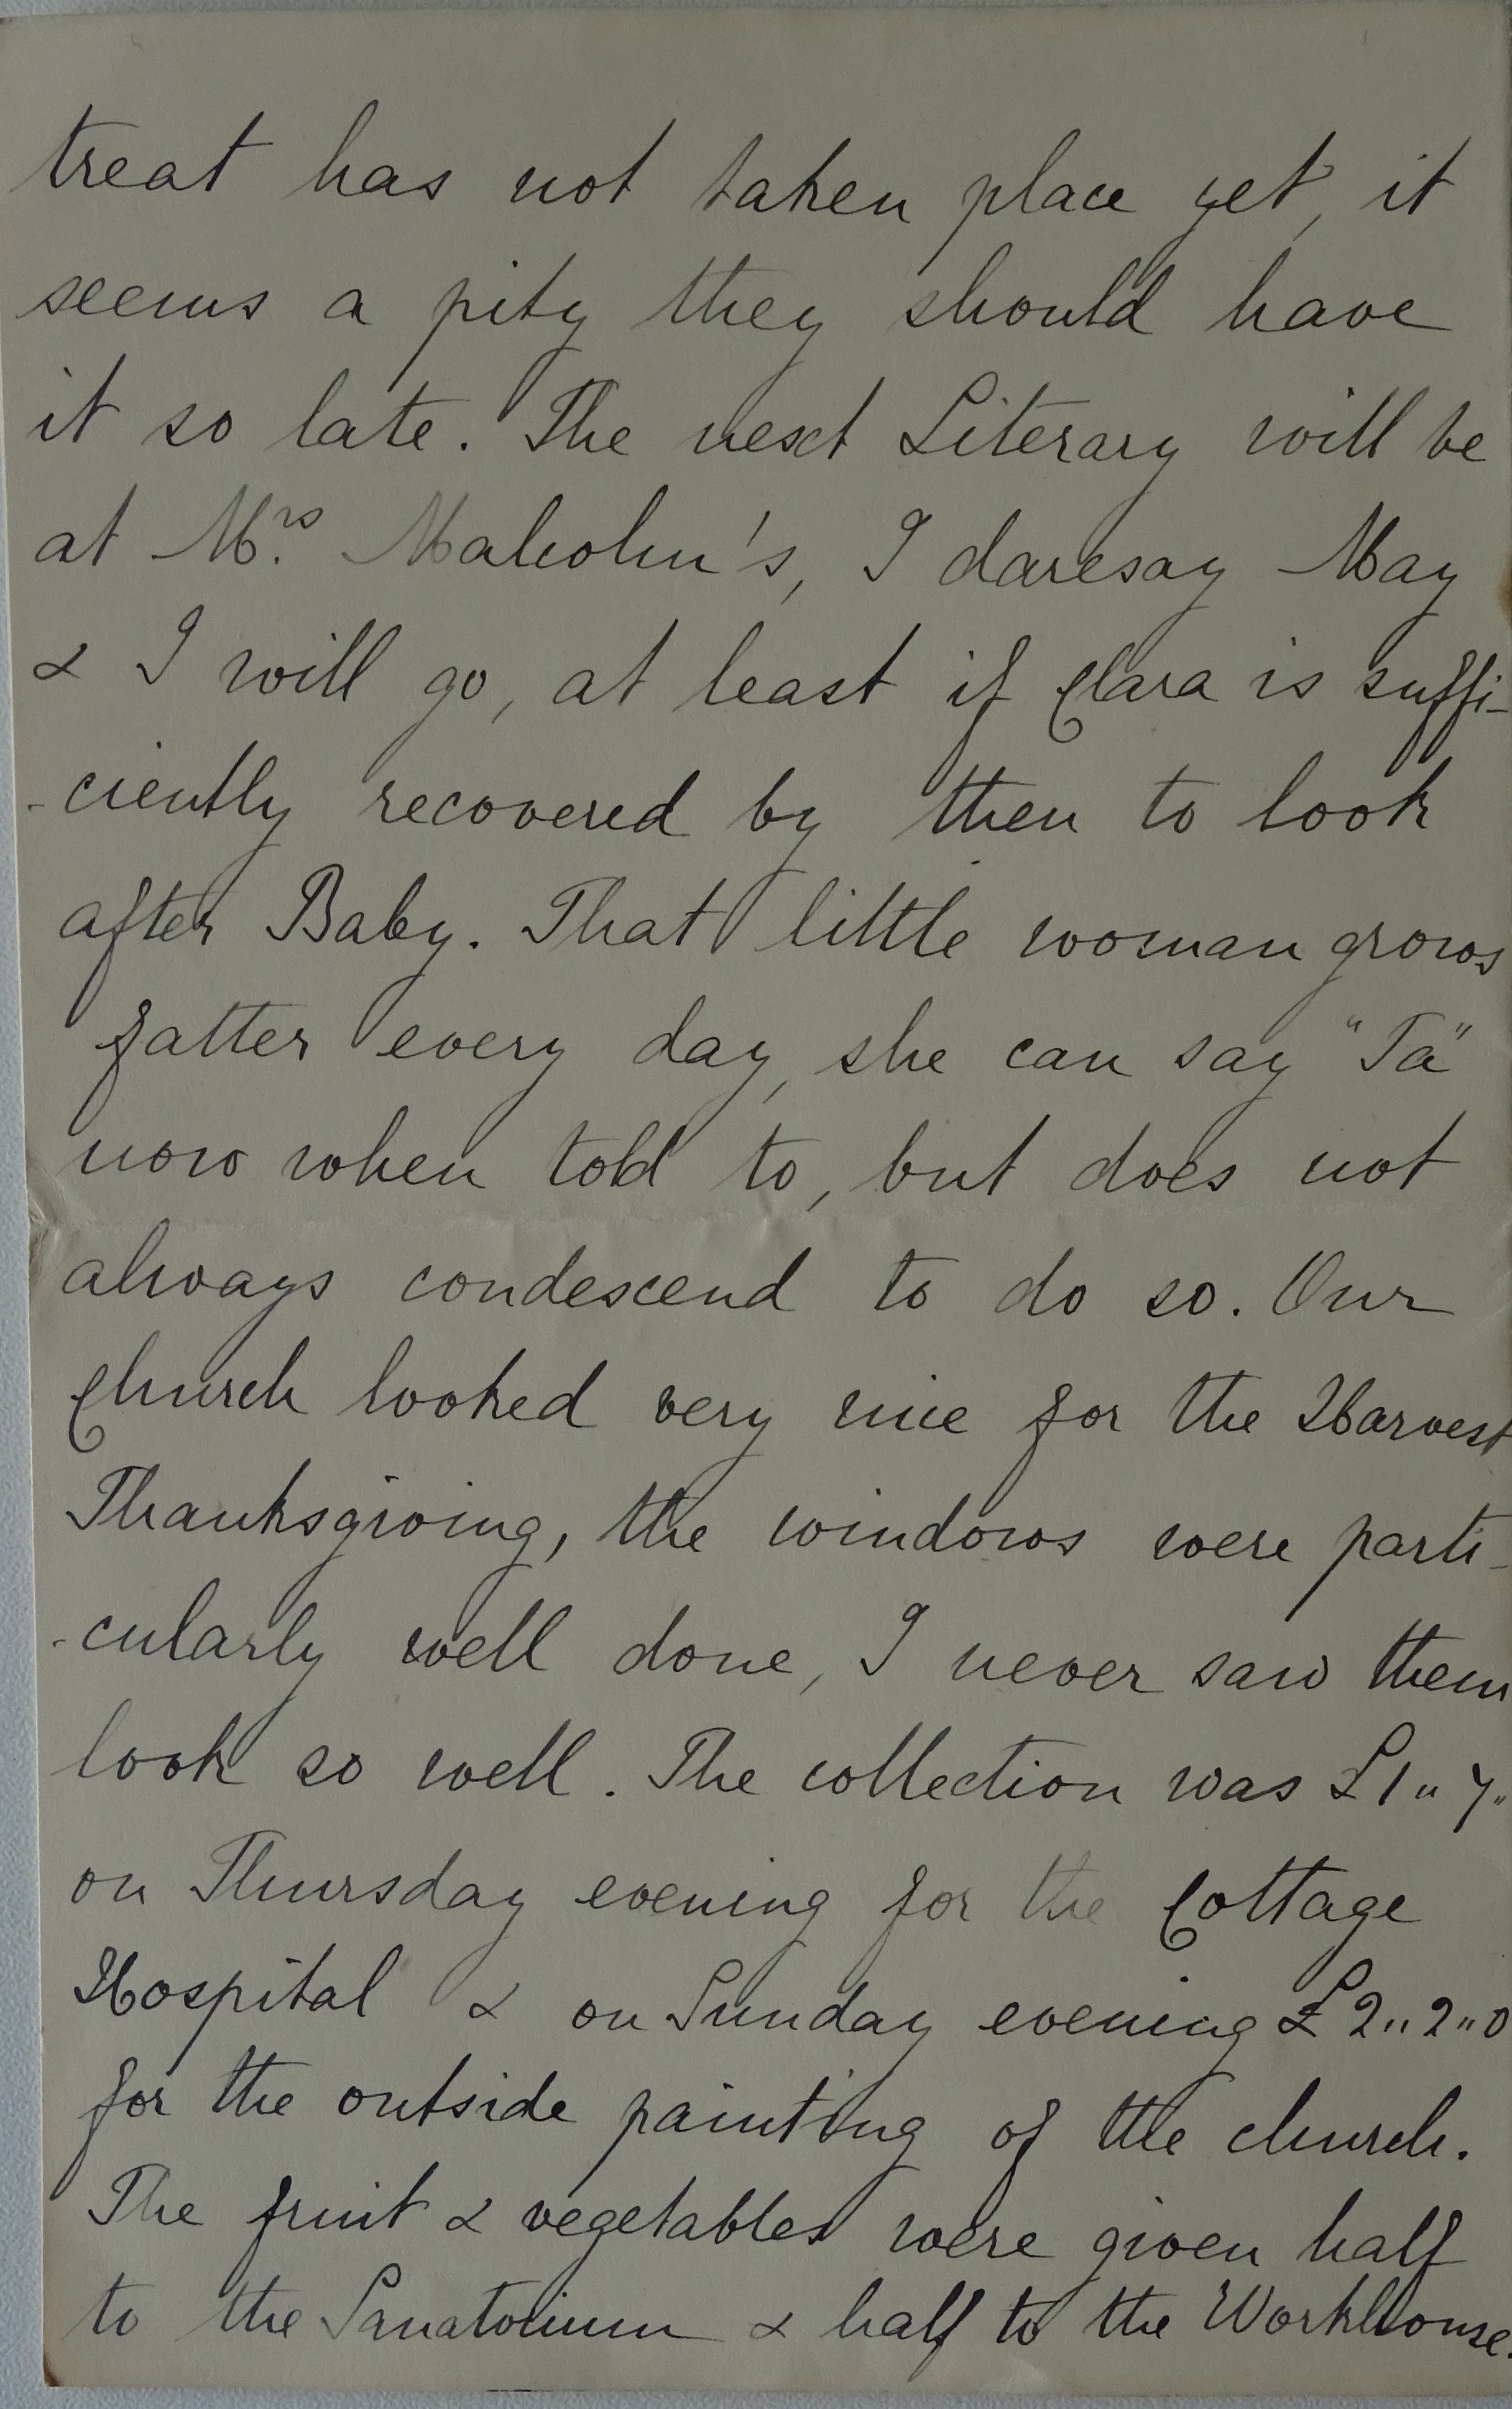 treat has not taken place yet, it
seems a pity they should have
it so late. The next Literary will be
at Mrs. Malcolm's, I daresay May
& I will go, at least if Clara is suffi-
-ciently recovered by then to look
after Baby. That little woman grows
fatter every day, she can say "Ta"
now when told to, but does not
always condescend to do so. Our
Church looked very nice for the Harvest
Thanksgiving, the windows were parti-
-cularly well done, I never saw them
look so well. The collection was £1"7"
on Thursday evening for the Cottage
Hospital & on Sunday evening £2"2"0
for the outside painting of the church.
The fruit & vegetables were given half
to the Sanatorium & half to the Workhouse.